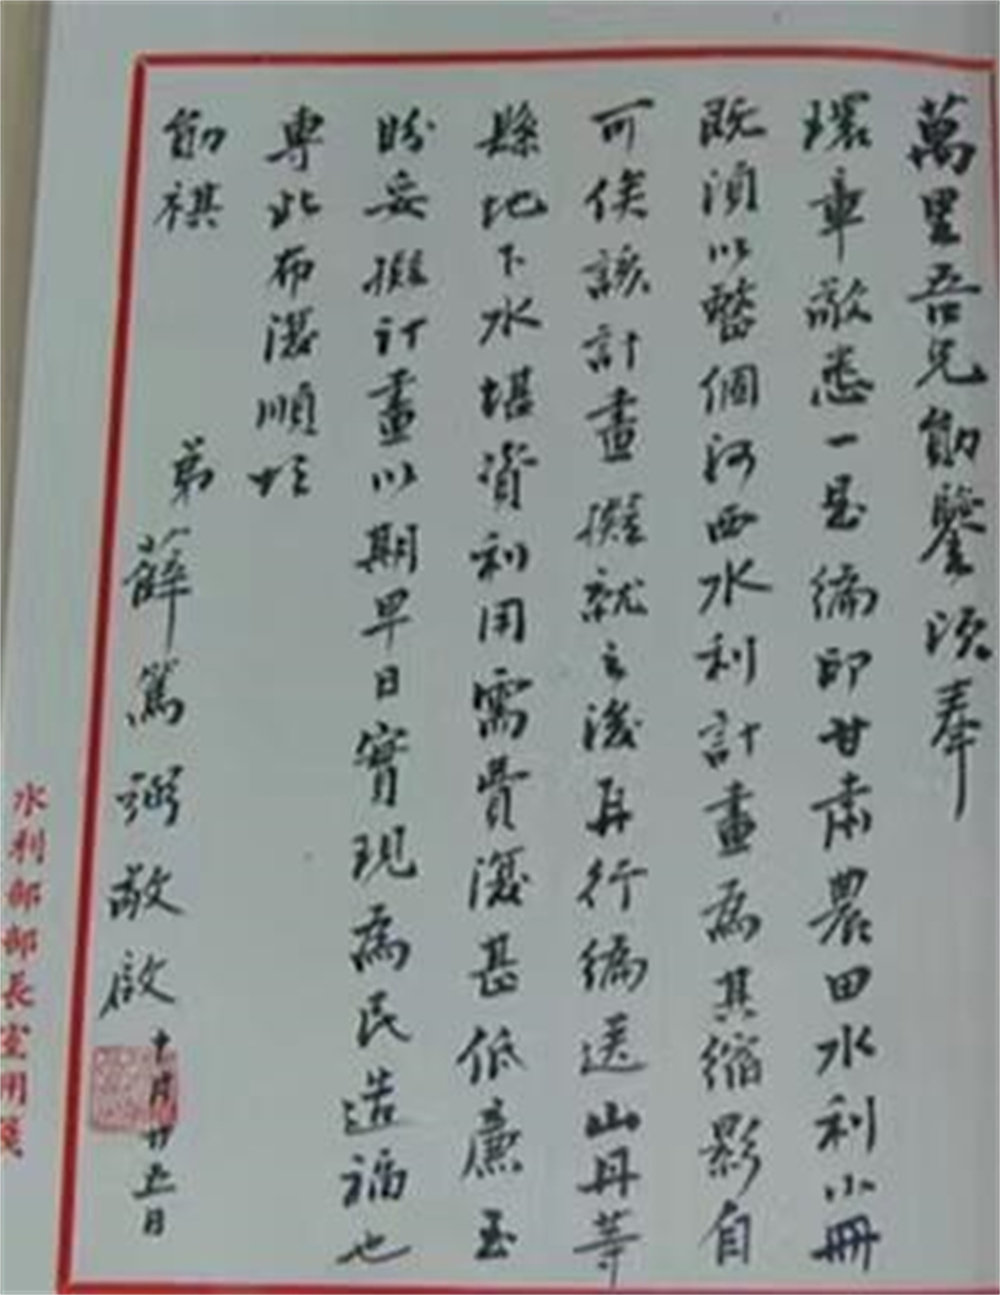 萬里吾兄勛鑒頃奉
環章敬悉一是編印甘肅農田水利小冊
既須以整個河西水利計畫為其縮影自
可俟該計畫擬就之後再行編送山丹等
縣地下水堪資利用需費復甚低廉至
盼妥擬計畫以期早日實現為民造福也
專此布復順頌
勛祺
弟薛篤弼敬啟十月廿五日
水利部部長室用箋